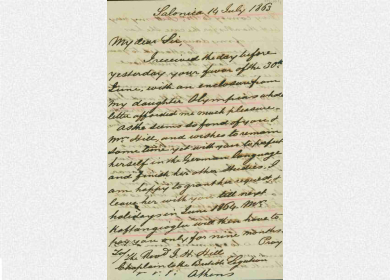 Salonica 14 July 1863
My dear Sir,
I received the day before
yesterday your favor of the 30th
June, with an enclosure from
my daughter Olympia whose
letter afforded me much pleasure.
As she seems so fond of you &
Mrs Hill, and wishes to remain
some time yet with you to perfect
herself in the German language
and finish her other studies, I
am happy to grant her request &
leave her with you till next
holidays in June 1864. Mr
with then have to
pay you only for nine months.
Pray
To/ The Revd J. H. Hill
Chaplain to the British Legation
Athens